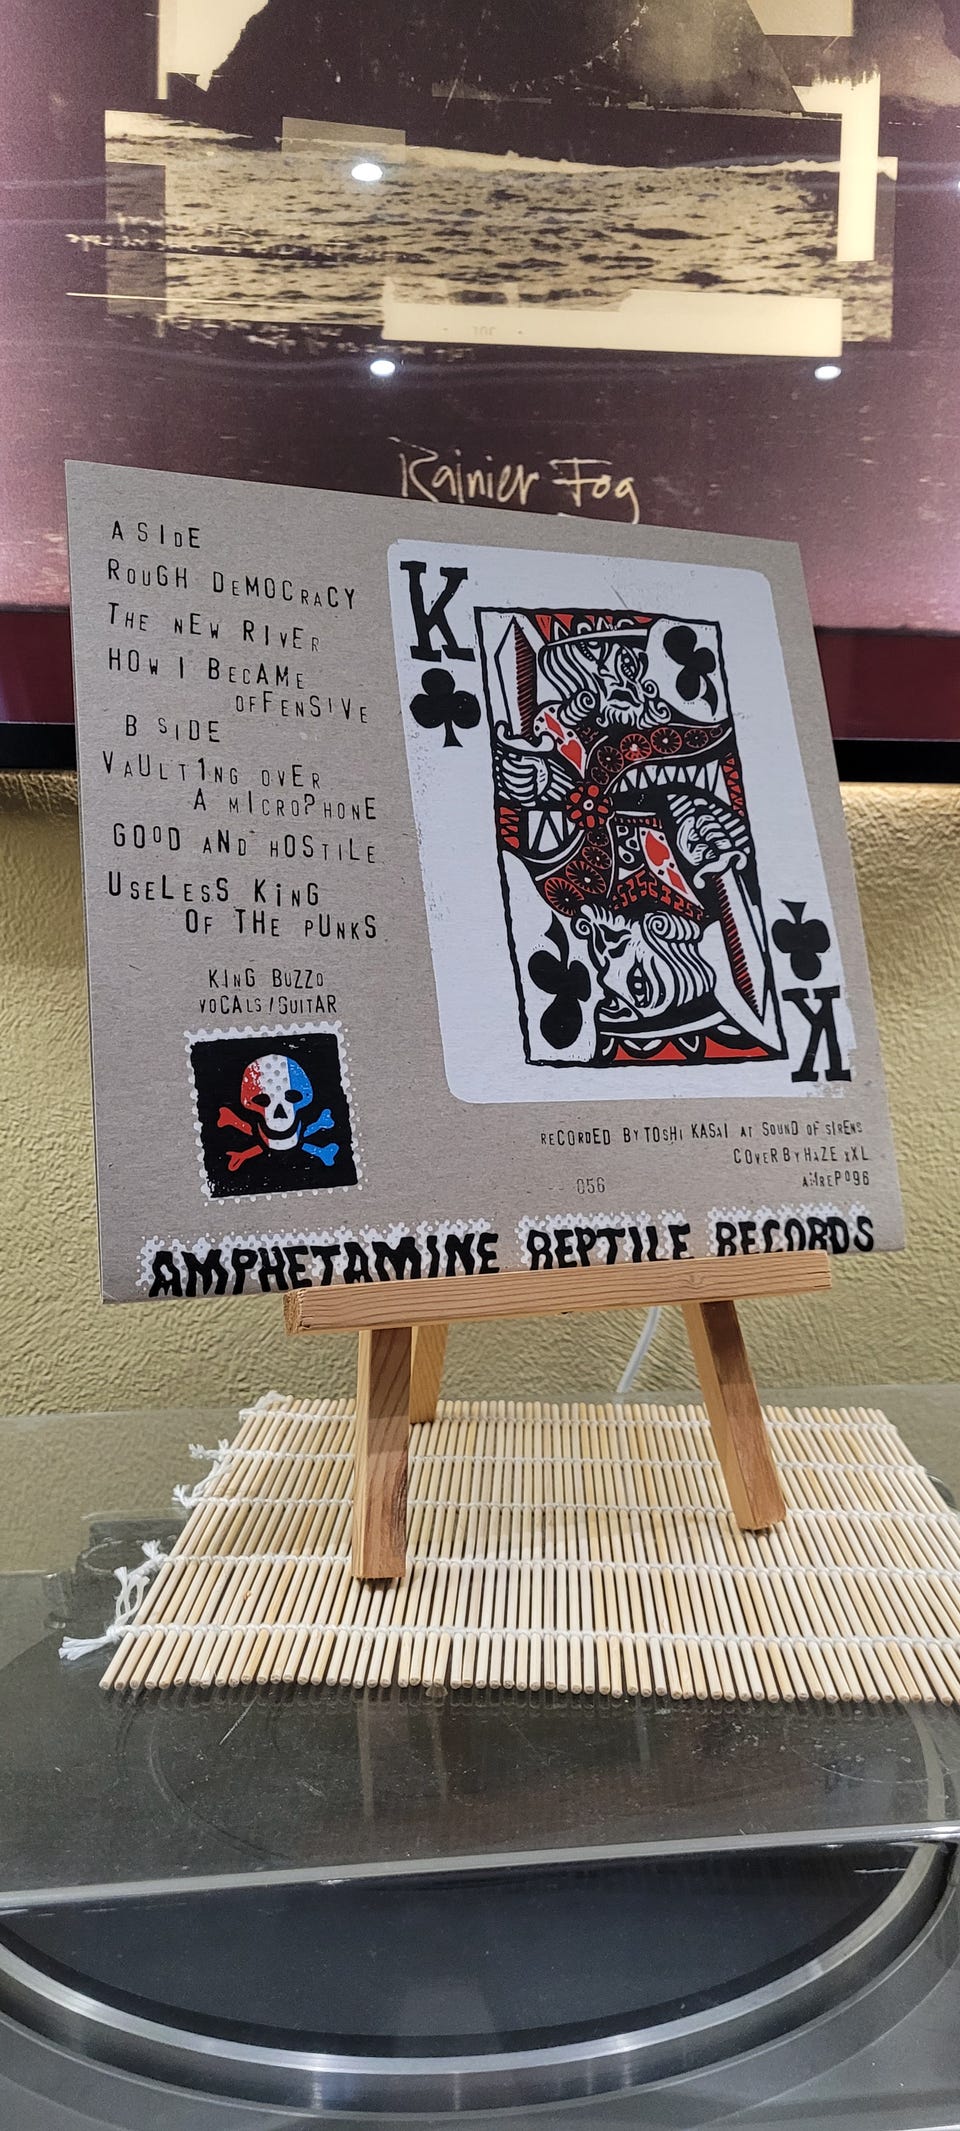 Rainier Fog
A SIDE
ROUGH DEMOCRACY
THE NEW RIVER
HOW I BECAME
OFFENSIVE
B SIDE
VAULT1NG OVER
A MICROPHONE
GOOD AND HOSTILE
USELESS KING
OF THE PUNKS
KING BUZZO
VOCALS/GUITAR
K
K
RECORDED BY TOSHI KASAI AT SOUND OF SIRENS
COVER BY HAZE XXL
AMREP096
056
AMPHETAMINE REPTILE RECORDS